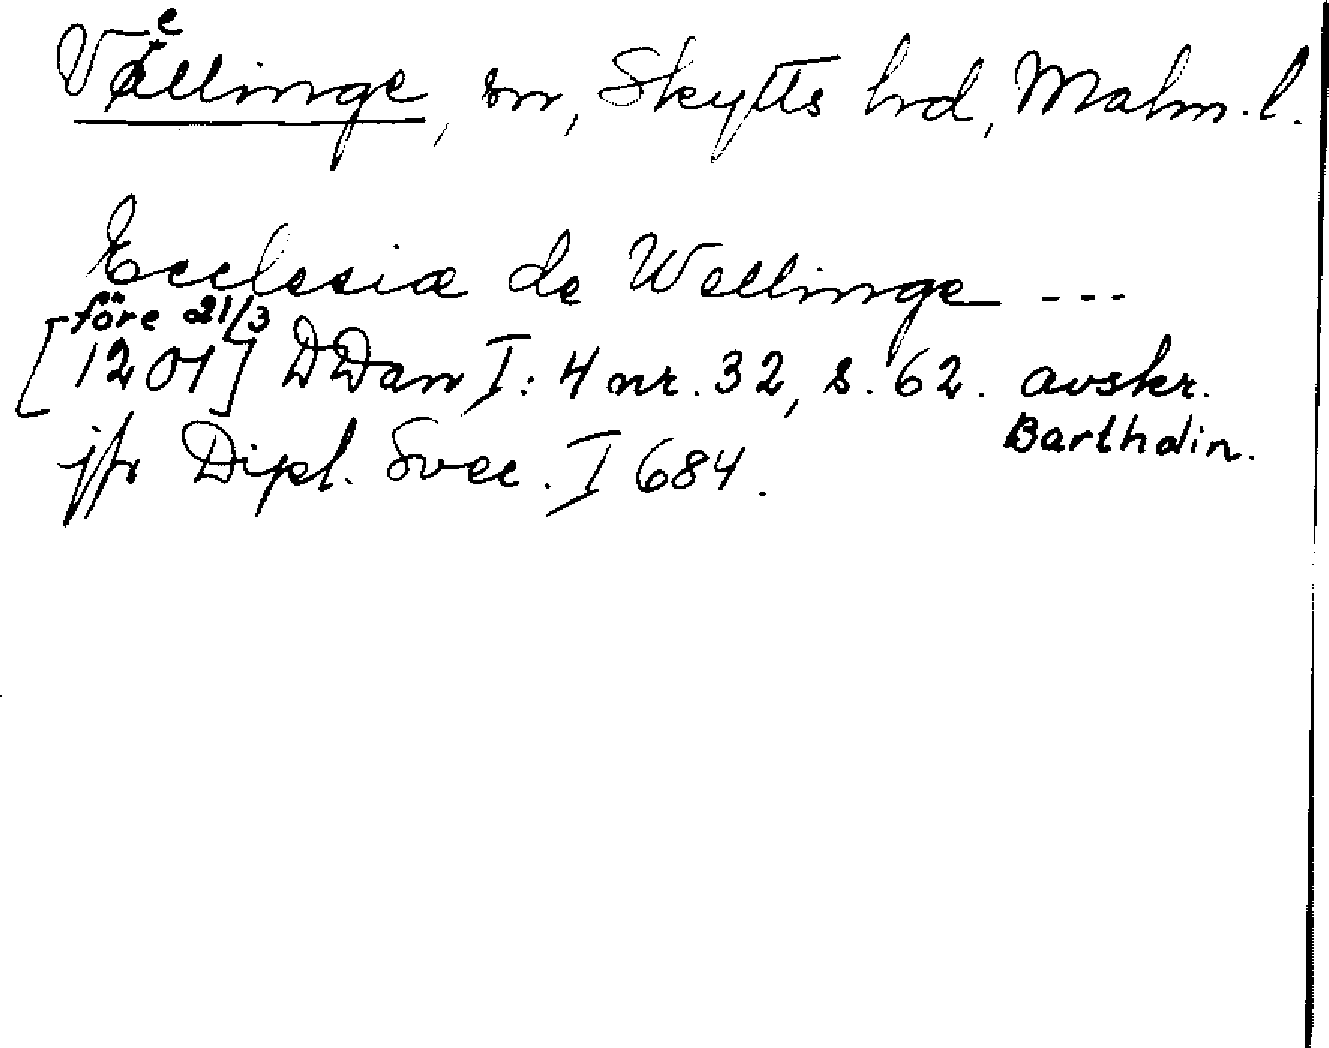 Vellinge, sn, Skytts hd, Malm. l.
Ecclesiæ de Wellinge ---
före 21/3
[1201] DDan I: 4 nr. 32, s. 62. avskr.
Bartholin.
jfr Dipl. Svec. I 684.